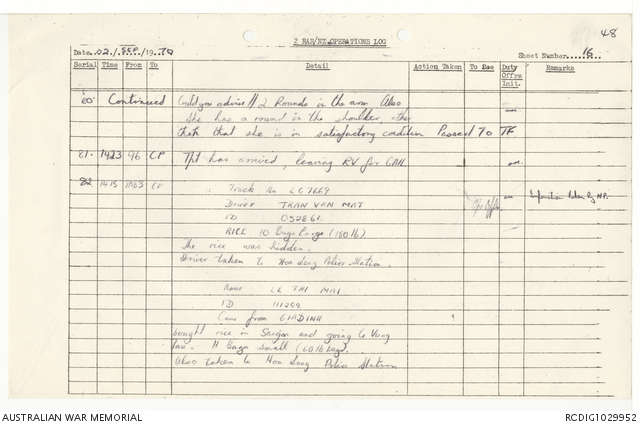 48
2 RAR/NZ OPERATIONS LOG
Date 02 / SEP / 19 70
Sheet Number 16
Serial Time From To Detail Action Taken To See Duty Offrs Init. Remarks
80 Continued Could you advise 2 Rounds in the arm Also
She has a round in the shoulder, other
that she is in satisfactory condition Passed to TF
81. 1423 96 CP Tpt has arrived, leaving RV for
82 1415 CP Truck No LC 7669
Driver TRAN VAN MAT
ID
RICE 10 Large Bags (180 lb)
The rice was hidden.
Driver taken to Hoa Long Police Station.
Information taken by MP.
Name LE THI MAI
ID 111299
Came from GIADINH
bought rice in Saigon and going to Vung
Tau. 11 Bags small (60 lb bag)
Also taken to Hoa Long Police Station
AUSTRALIAN WAR MEMORIAL
RCDIG1029952